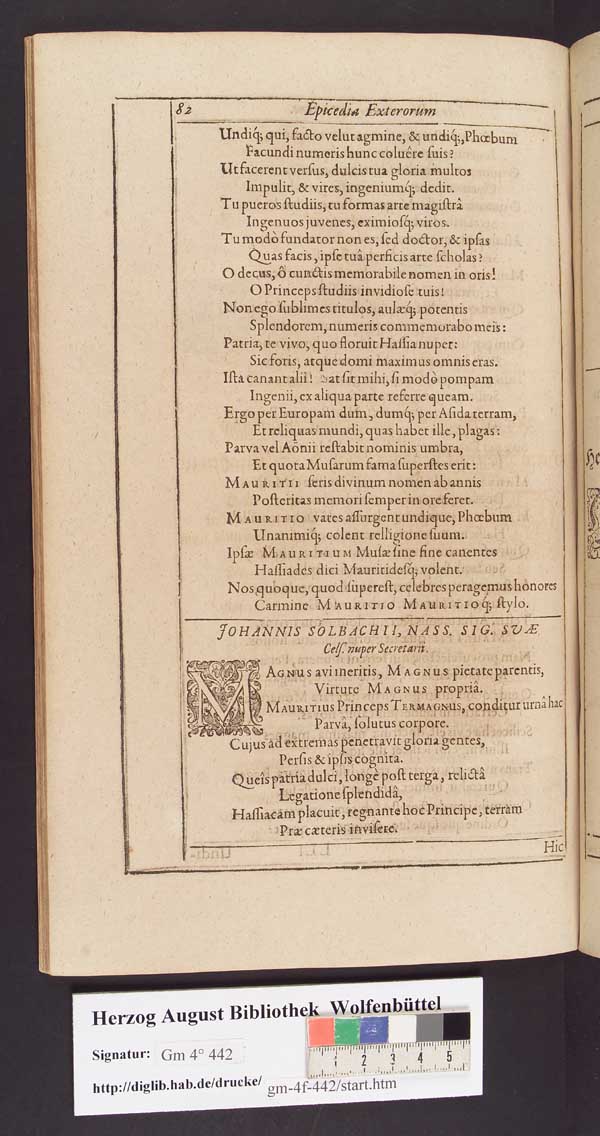 82 Epicedia Exterorum
Undiq́;, qui, facto velut agmine, & undiq́;, Phœbum
Facundi numeris hunc coluêre suis?
Ut facerent versus, dulcis tua gloria multos
Impulit, & vires, ingeniumq́; dedit.
Tu pueros studiis, tu formas arte magistrâ
Ingenuos juvenes, eximiosq́; viros.
Tu modò fundator non es, sed doctor, & ipsas
Quas facis, ipse tuâ perficis arte scholas?
O decus, ô cunctis memorabile nomen in oris!
O Princeps studiis invidiose tuis!
Non ego sublimes titulos, aulæq́; potentis
Splendorem, numeris commemorabo meis:
Patria, te vivo, quo floruit Hassia nuper:
Sic foris, atque domi maximus omnis eras.
Ista canant alii! Sat sit mihi, si modò pompam
Ingenii, ex aliqua parte referre queam.
Ergo per Europam dum, dumq́; per Asida terram,
Et reliquas mundi, quas habet ille, plagas:
Parva vel Aönii restabit nominis umbra,
Et quota Musarum fama superstes erit:
MAURITII seris divinum nomen ab annis
Posteritas memori semper in ore feret.
MAURITIO vates assurgent undique, Phœbum
Unanimiq́; colent relligione suum.
Ipsæ MAURITIUM Musæ sine fine canentes
Hassiades dici Mauritidesq́; volent.
Nos quoque, quod superest, celebres peragemus honores
Carmine MAURITIO MAURITIOq́; stylo.
JOHANNIS SOLBACHII, NASS. SIG. SVÆ
Cels. nuper Secretarii.
MAGNUS avi meritis, MAGNUS pietate parentis,
Virtute MAGNUS propriâ.
MAURITIUS Princeps TERMAGNUS, conditur urnâ hac
Parvâ, solutus corpore.
Cujus ad extremas penetravit gloria gentes,
Persis & ipsis cognita.
Queîs patria dulci, longè post terga, relictâ
Legatione splendidâ,
Hassiacam placuit, regnante hoc Principe, terram
Præ cæteris invisere.
Hic
Herzog August Bibliothek Wolfenbüttel
Signatur: Gm 4° 442
http://diglib.hab.de/drucke/ gm-4f-442/start.htm
1 2 3 4 5